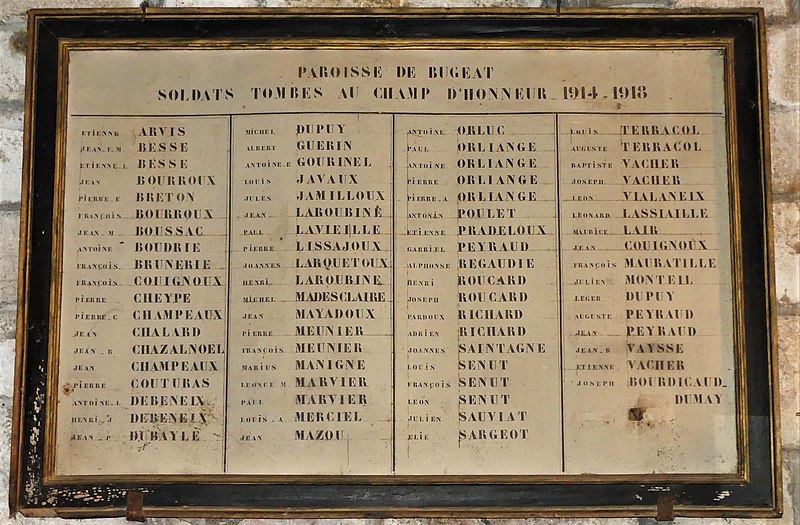 PAROISSE DE BUGEAT
SOLDATS TOMBES AU CHAMP D'HONNEUR 1914-1918
ETIENNE ARVIS
JEAN F.M BESSE
ETIENNE L BESSE
JEAN BOURROUX
PIERRE E BRETON
FRANÇOIS BOURROUX
JEAN M BOUSSAC
ANTOINE BOUDRIE
FRANÇOIS BRUNERIE
FRANÇOIS COUIGNOUX
PIERRE CHEYPE
PIERRE C CHAMPEAUX
JEAN CHALARD
JEAN B CHAZALNOEL
JEAN CHAMPEAUX
PIERRE COUTURAS
ANTOINE L DEBENEIX
HENRI J DEBENEIX
JEAN P DUBAYLE
MICHEL DUPUY
ALBERT GUERIN
ANTOINE E GOURINEL
LOUIS JAVAUX
JULES JAMILLOUX
JEAN LAROUBINE
PAUL LAVIEILLE
PIERRE LISSAJOUX
JOANNES LARQUETOUX
HENRI LAROUBINE
MICHEL MADESCLAIRE
JEAN MAYADOUX
PIERRE MEUNIER
FRANÇOIS MEUNIER
MARIUS MANIGNE
LEONCE M MARVIER
PAUL MARVIER
LOUIS A MERCIEL
JEAN MAZOU
ANTOINE ORLUC
PAUL ORLIANGE
ANTOINE ORLIANGE
PIERRE ORLIANGE
PIERRE A ORLIANGE
ANTONIN POULET
ETIENNE PRADELOUX
GABRIEL PEYRAUD
ALPHONSE REGAUDIE
HENRI ROUCARD
JOSEPH ROUCARD
PARDOUX RICHARD
ADRIEN RICHARD
JOANNES SAINTAGNE
LOUIS SENUT
FRANÇOIS SENUT
LEON SENUT
JULIEN SAUVIAT
ELIE SARGEOT
LOUIS TERRACOL
AUGUSTE TERRACOL
BAPTISTE VACHER
JOSEPH VACHER
LEON VIALANEIX
LEONARD LASSIAILLE
MAURICE LAIR
JEAN COUIGNOUX
FRANÇOIS MAURATILLE
JULIEN MONTEIL
LEGER DUPUY
AUGUSTE PEYRAUD
JEAN PEYRAUD
JEAN B VAYSSE
ETIENNE VACHER
JOSEPH BOURDICAUD
DUMAY